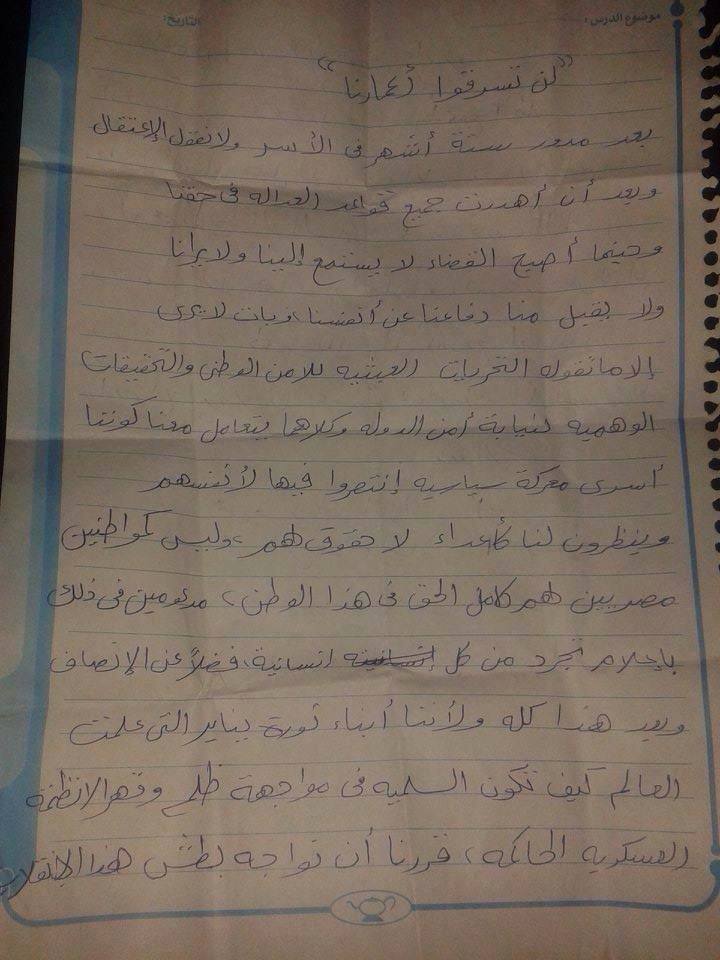 موضوع الدرس:
التاريخ:
"لن تسرقوا أعمارنا"
بعد مرور ستة أشهر فى الأسر ولا نقول الإعتقال
وبعد أن أهدرت جميع قواعد العداله فى حقنا
وحينما أصبح القضاء لا يستمع إلينا ولا يرانا
ولا يقبل منا دفاعنا عن أنفسنا، وبات لا يرى
إلا ما تقوله التحريات العبثيه للامن الوطنى والتحقيقات
الوهميه لنيابة أمن الدوله وكلاهما يتعامل معنا كوننا
أسرى معركة سياسيه إنتصروا فيها لأنفسهم
وينظرون لنا كأعداء لا حقوق لهم، وليس كمواطنين
مصريين لهم كامل الحق فى هذا الوطن، مدعومين فى ذلك
بإعلام تجرد من كل إنسانية، فضلاً عن الإنصاف
وبعد هذا كله ولأننا أبناء ثورة يناير التى علمت
العالم كيف تكون السلميه فى مواجهة ظلم وقهر الانظمة
العسكريه الحاكمه، قررنا أن نواجه بطش هذا الإنقلاب